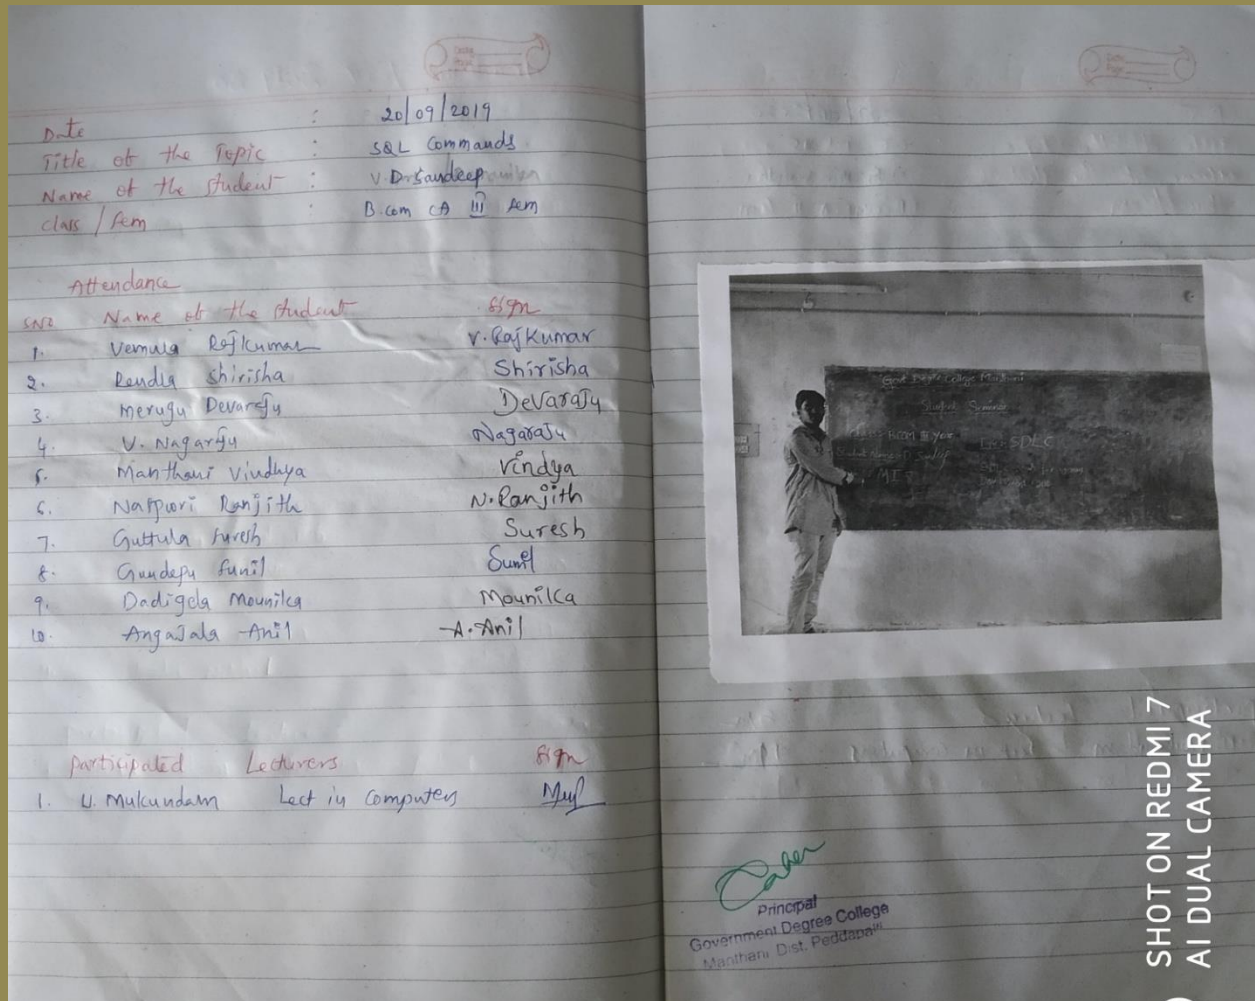 Date : 20/09/2019
Title of the Topic : SQL Commands
Name of the student : V. D. Sandeep
Class / Sem : B.com CA III Sem
Attendance
SNO Name of the student Sign
1. Vemula Rajkumar V. Rajkumar
2. Rendla Shirisha Shirisha
3. Merugu Devaraju Devaraju
4. V. Nagaraju Nagaraju
5. Manthani Vindhya Vindya
6. Ranjith N. Ranjith
7. Guttula Suresh Suresh
8. Gundepu Sunil Sunil
9. Dadigela Mounika Mounika
10. Angajala Anil A. Anil
Participated Lecturers Sign
1. U. Mukundam Lect in Computers
Govt Degree College Manthani
Student Seminar
SDLC
Principal
Government Degree College
Manthani Dist. Peddapalli
SHOT ON REDMI 7
AI DUAL CAMERA